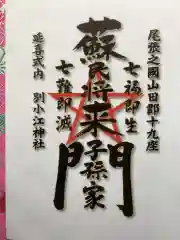 尾張之國山田郡十九座
七福即生
蘇民将来子孫家門
七難即滅
延喜式内 別小江神社